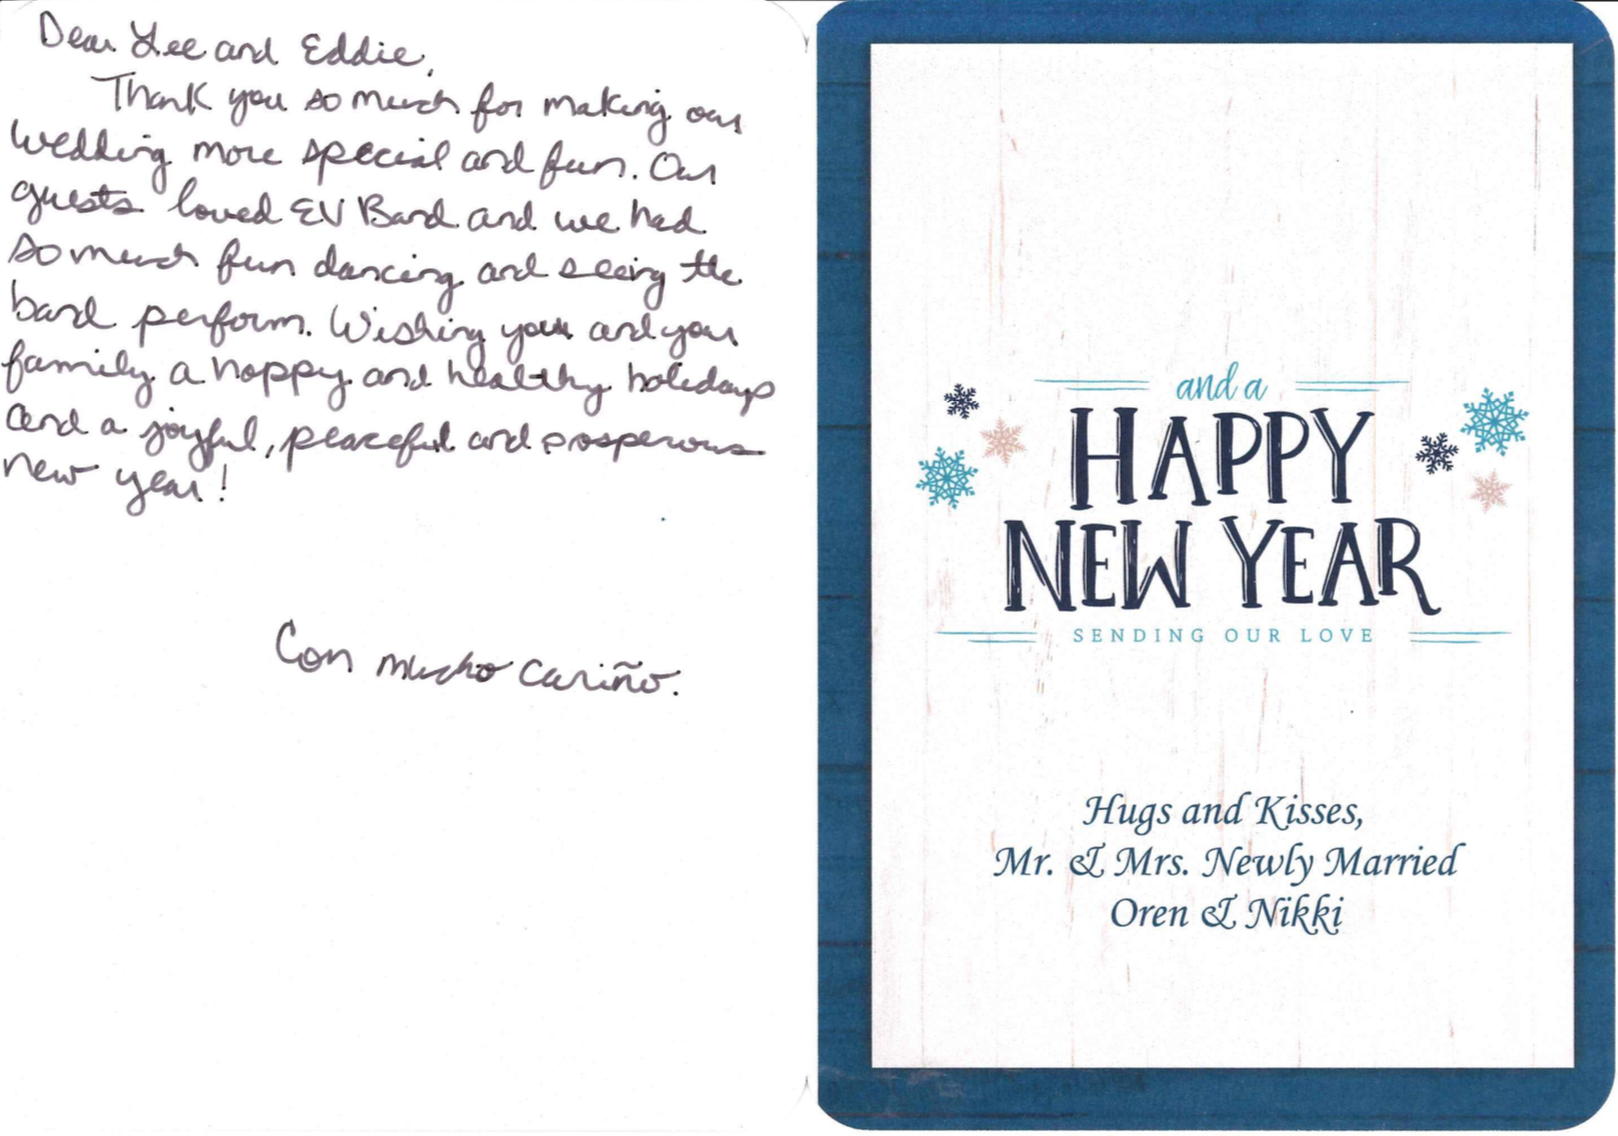 Dear Lee and Eddie,
Thank you so much for making our
wedding more special and fun. Our
guests loved EV Band and we had
so much fun dancing and seeing the
band perform. Wishing you and your
family a happy and healthy holidays
and a joyful, peaceful and prosperous
new year!
Con mucho cariño.
and a
HAPPY
NEW YEAR
SENDING OUR LOVE
Hugs and Kisses,
Mr. & Mrs. Newly Married
Oren & Nikki